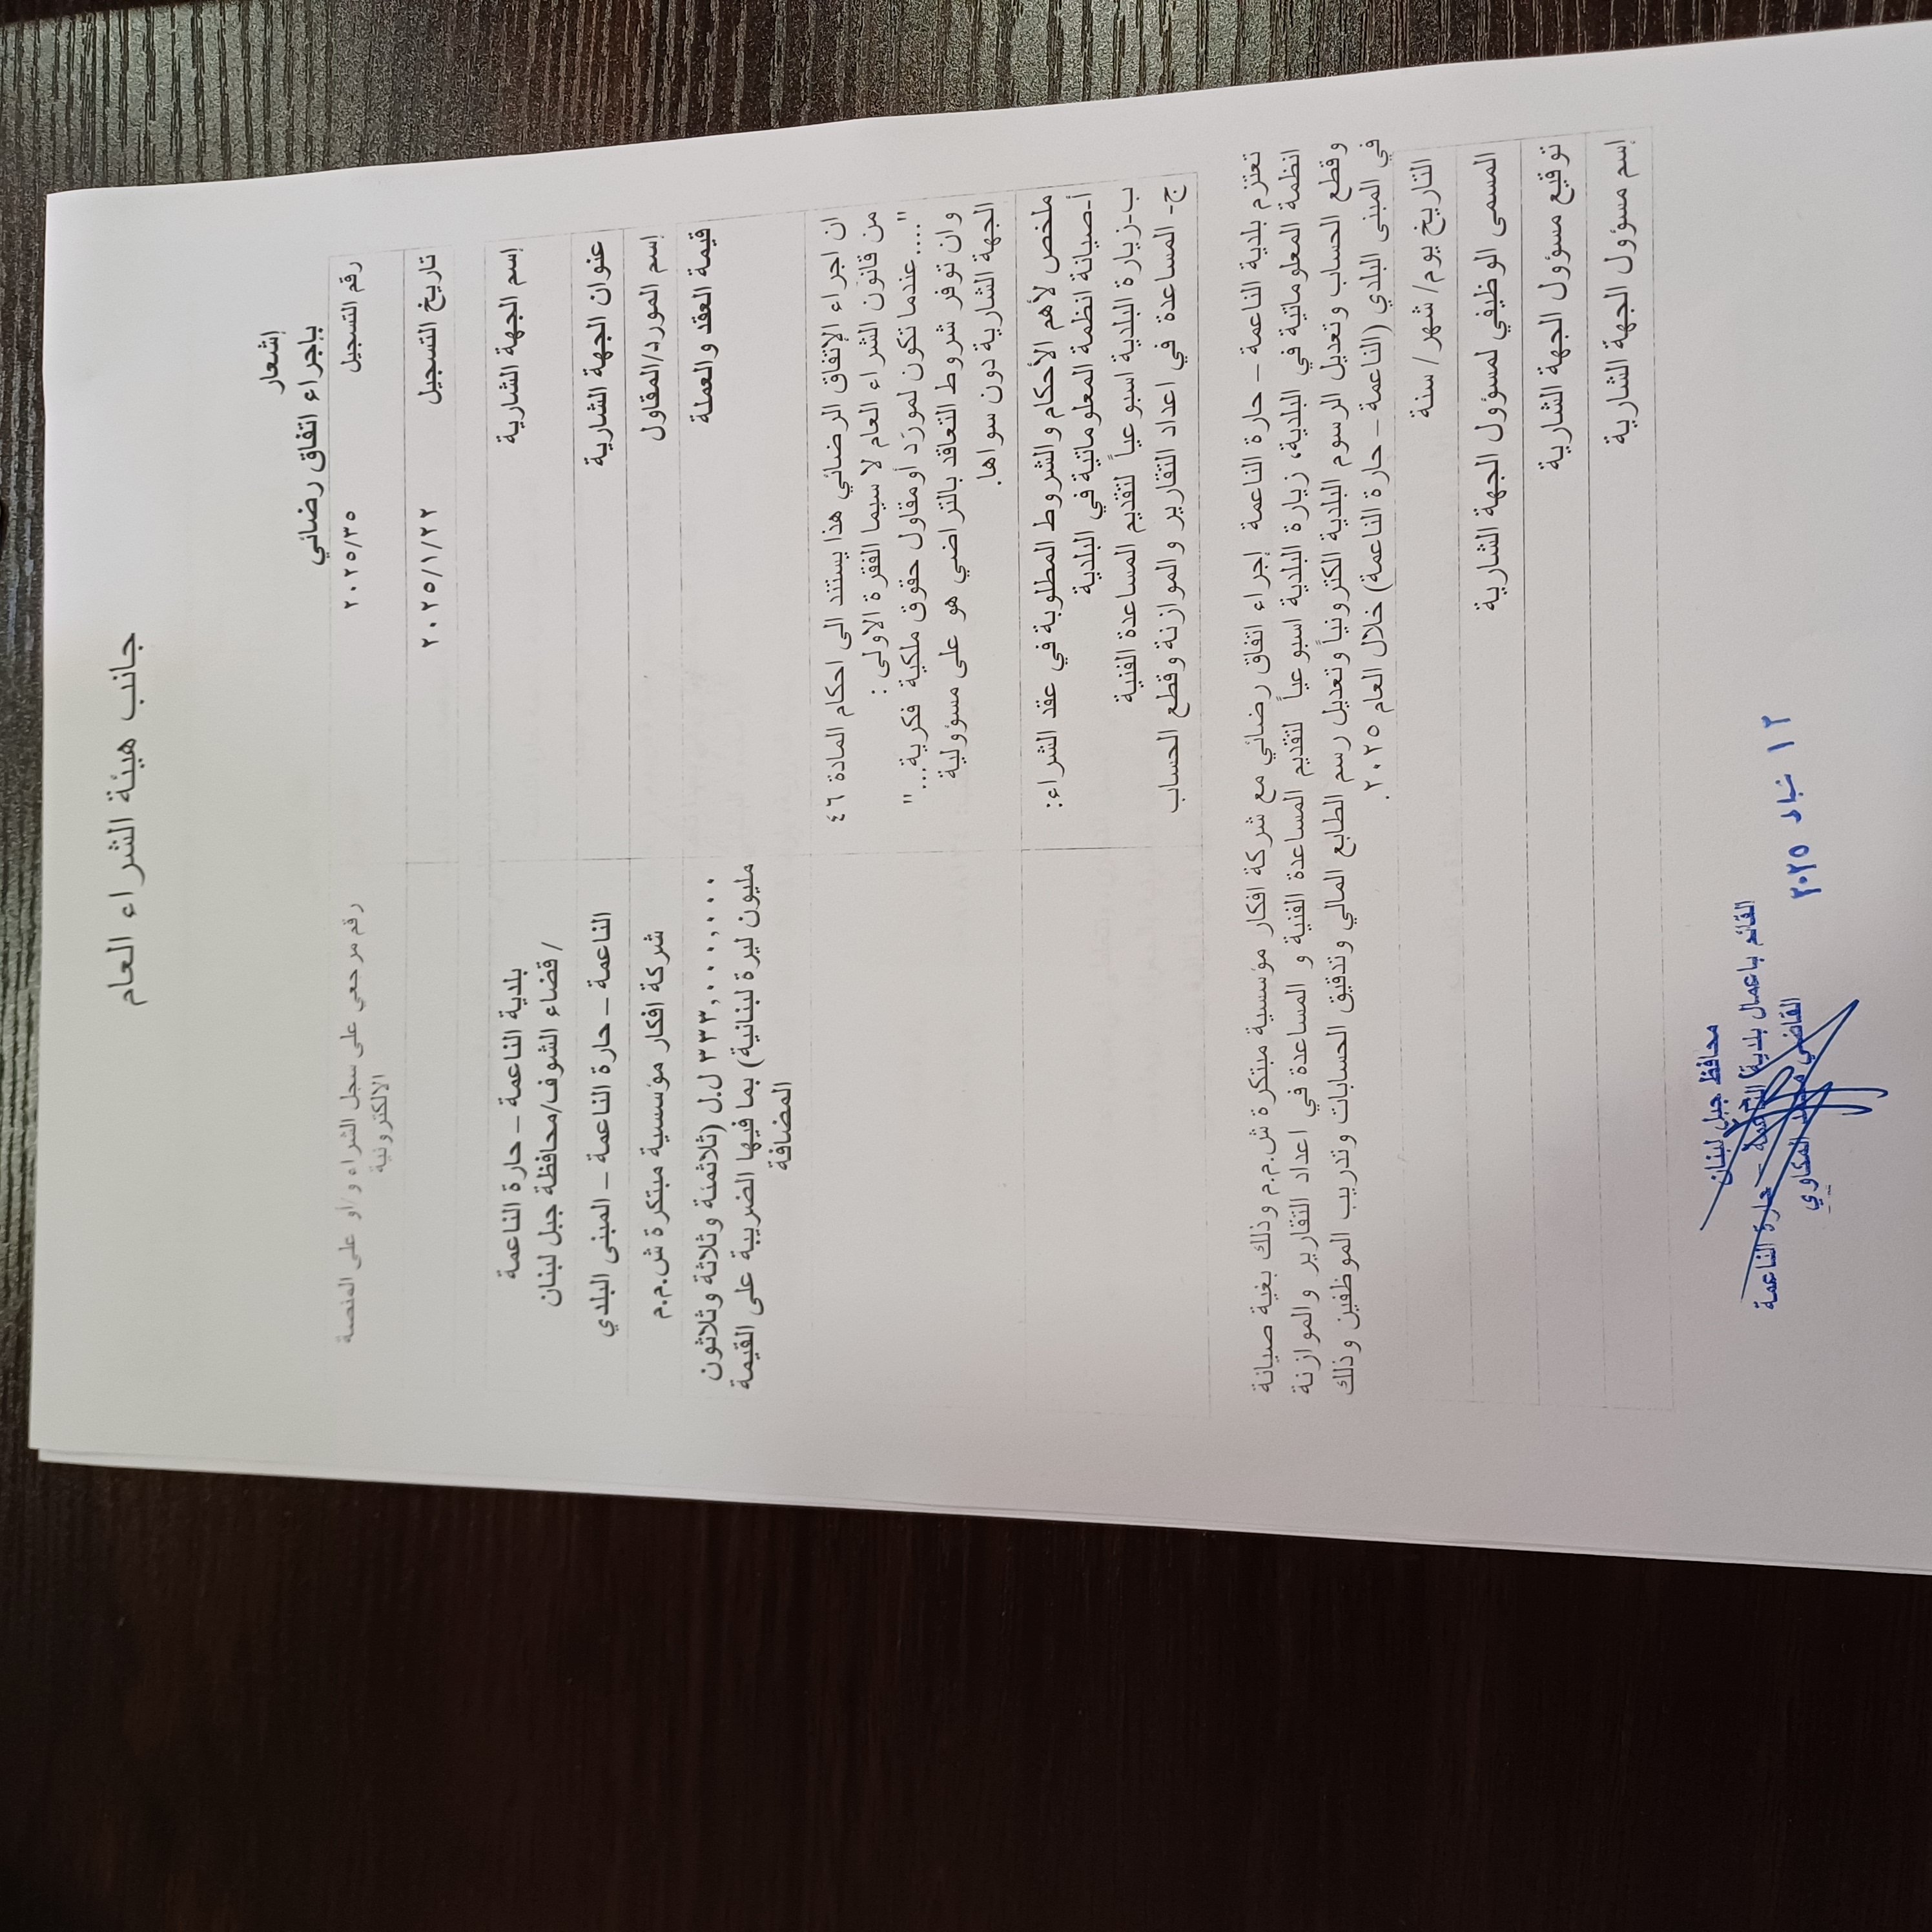 جانب هيئة الشراء العام
إشعار
بإجراء اتفاق رضائي
رقم التسجيل ٢٠٢٥/٣٥
رقم مرجعي على سجل الشراء و/أو على المنصة
الالكترونية
تاريخ التسجيل ٢٠٢٥/١/٢٢
إسم الجهة الشارية
بلدية الناعمة – حارة الناعمة
/قضاء الشوف/محافظة جبل لبنان
عنوان الجهة الشارية
الناعمة – حارة الناعمة – المبنى البلدي
إسم المورد/المقاول
شركة افكار مؤسسية مبتكرة ش.م.م
قيمة العقد والعملة
٣٣٣,٠٠٠,٠٠٠ ل.ل (ثلاثمئة وثلاثة وثلاثون
مليون ليرة لبنانية) بما فيها الضريبة على القيمة
المضافة
ان اجراء الإتفاق الرضائي هذا يستند الى احكام المادة ٤٦
من قانون الشراء العام لا سيما الفقرة الاولى :
"....عندما تكون لمورّد أو مقاول حقوق ملكية فكرية..."
وان توفر شروط التعاقد بالتراضي هو على مسؤولية
الجهة الشارية دون سواها.
ملخص لأهم الأحكام والشروط المطلوبة في عقد الشراء:
أ-صيانة انظمة المعلوماتية في البلدية
ب-زيارة البلدية اسبوعياً لتقديم المساعدة الفنية
ج- المساعدة في اعداد التقارير والموازنة وقطع الحساب
تعتزم بلدية الناعمة – حارة الناعمة إجراء اتفاق رضائي مع شركة افكار مؤسسية مبتكرة ش.م.م وذلك بغية صيانة
انظمة المعلوماتية في البلدية، زيارة البلدية اسبوعياً لتقديم المساعدة الفنية و المساعدة في اعداد التقارير والموازنة
وقطع الحساب وتعديل الرسوم البلدية الكترونياً وتعديل رسم الطابع المالي وتدقيق الحسابات وتدريب الموظفين وذلك
في المبنى البلدي (الناعمة – حارة الناعمة) خلال العام ٢٠٢٥ .
التاريخ يوم/ شهر/ سنة
المسمى الوظيفي لمسؤول الجهة الشارية
توقيع مسؤول الجهة الشارية
إسم مسؤول الجهة الشارية
محافظ جبل لبنان
القائم باعمال بلدية الناعمة – حارة الناعمة
القاضي محمد المكاوي
١٢ شباط ٢٠٢٥